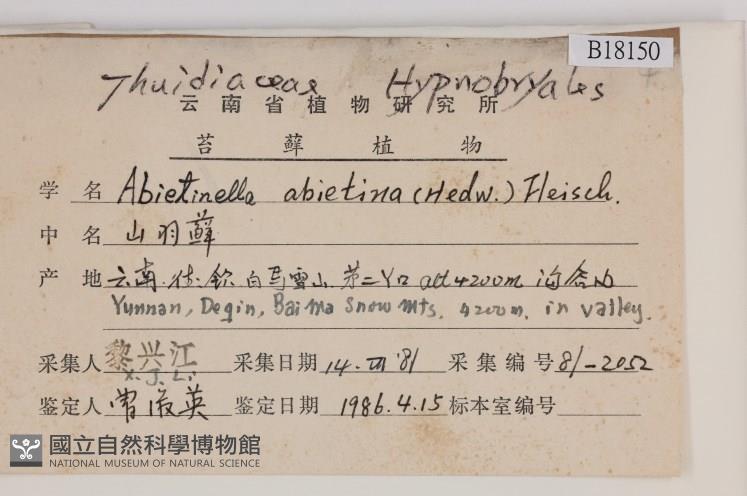 B18150
Thuidiaceae Hypnobryales
云南省植物研究所
苔藓植物
学名 Abietinella abietina (Hedw.) Fleisch.
中名 山羽藓
产地 云南.德钦.白马雪山.第二丫口 alt 4200m 沟谷内
Yunnan, Deqin, Baima Snow Mts. 4200m. in valley.
采集人 黎兴江 采集日期 14.VII '81 采集编号 81-2052
X. J. Li
鉴定人 英 鉴定日期 1986.4.15 标本室编号
國立自然科學博物館
NATIONAL MUSEUM OF NATURAL SCIENCE